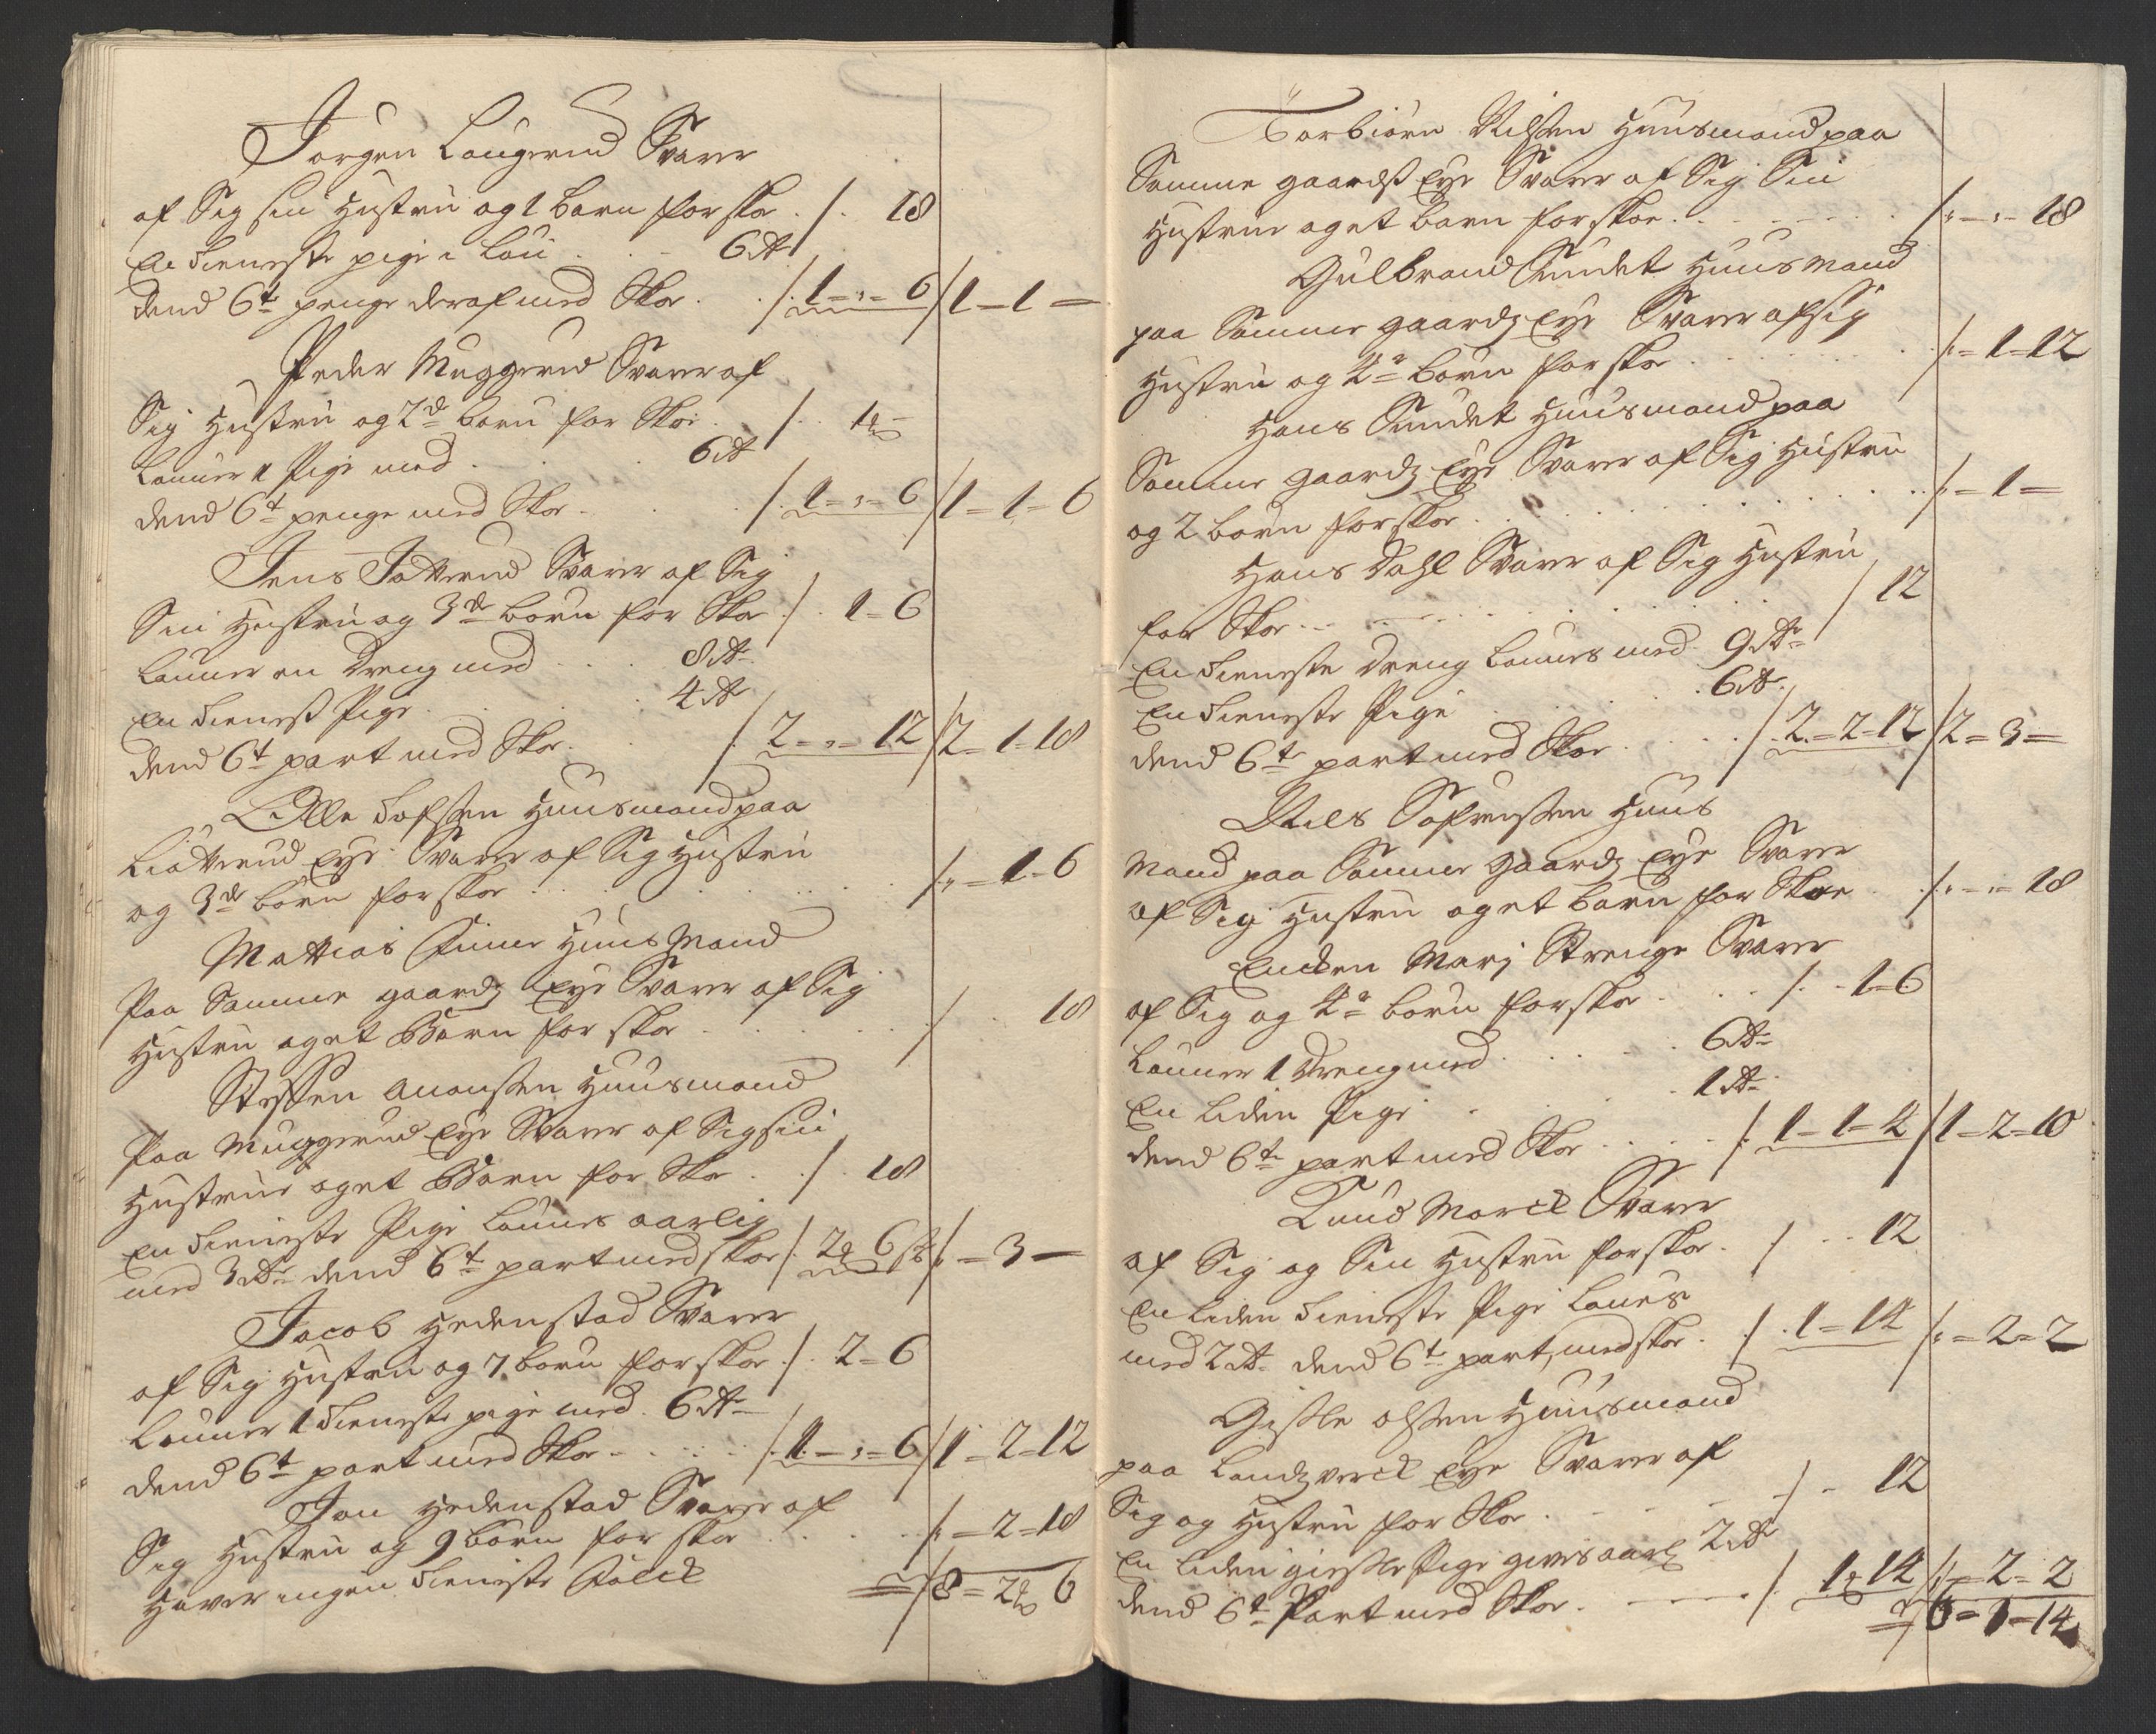 Jorgen Laugerud Svarer
af Sig sin Hustru og 1 barn for skoe . /. 18
En tieneste pige i Løn . . 6 d
dend 6te penge deraf med Skoe . . /. 1 = „ = 6 / 1 = 1 =
Peder Muggerud Svarer af
Sig Hustru og 2de børn for Skoe . /. 1 =
Lønner 1 Pige med . . 6 d
dend 6te penge med Skoe . . /. 1 = „ = 6 / 1 = 1 = 6
Jens Svarer af Sig
Sin Hustru og 3de børn for Skoe /. 1 = 6
Lønner en Dreng med . . . 8 d
En tienest Pige . . 4 d
dend 6te part med Skoe . . /. 2 = „ = 12 / 2 = 1 = 18
Olle Huusmand paa
Eye Svarer af Sig Hustru
og 3de børn for skoe . . . /. „ = 1 = 6
Mattias Huus Mand
Paa Samme gaards Eye Svarer af Sig
Hustru og et Barn for skoe . . . /. 18
Steffen Huusmand
Paa Muggerud Eye Svarer af Sig sin
Hustrue og et Barn for Skoe . /. 18
En tieneste Pige Lønnes aarlig
med 3 dr dend 6te part med skoe /. 2 = 6 /. = 3 =
Jacob Hedenstad Svarer
af Sig Hustru og 7 børn for skoe /. 2 = 6
Lønner 1 tieneste pige med 6 d
dend 6te part med Skoe . . . /. 1 = „ = 6 / 1 = 2 = 12
Jon Hedenstad Svarer af
Sig Hustru og 9 børn for skoe . . . /. = 2 = 18
Haver ingen tieniste Folck / 8 = 2 = 6
Torbiørn Nilssen Huusmand paa
Samme gaardss Eye Svarer af Sig Sin
Hustrue og et barn for skoe . . . /. „ = „ = 18
Gulbrand Sundet Huus Mand
paa Samme gaards Eye Svarer af Sig
Hustru og 4re børn for skoe . . . /. = 1 = 12
Hans Sundet Huusmand paa
Samme gaards Eye Svarer af Sig Hustru
og 2 børn for skoe . . . /. = 1 =
Hans Dahl Svarer af Sig Hustru
for Skoe . . . / 12
En tieneste Dreng Lønnes med 9 dr
En tieneste Pige . . 6 d
dend 6te part med Skoe . . . /. 2 = 2 = 12 / 2 = 3 =
Niels Huus
Mand paa Samme gaards Eye Svarer
af Sig Hustru og et barn for Skoe . /. „ = „ = 18
Encken Marj Strenge Svarer
af Sig og 4re børn for skoe . . . /. 1 = 6
Lønner 1 Dreng med . . . 6 d
En Liden Pige . . . 1 d
dend 6te part med Skoe . . . /. 1 = 1 = 4 / 1 = 2 = 10
Knud Morck Svarer
af Sig og Sin Hustru for skoe . / . . 12
En Liden tieneste Pige Lønes
med 2 d dend 6te part, med skoe . /. 1 = 14 /. = 2 = 2
Gisle olssen Huusmand
paa Landsverck Eye Svarer af
Sig og Hustru for Skoe . . . /. 12
En Liden Pige gives aarl 2 d
dend 6te Part med Skoe . . . /. 1 = 14 /. = 2 = 2
/ 6 = 1 = 14